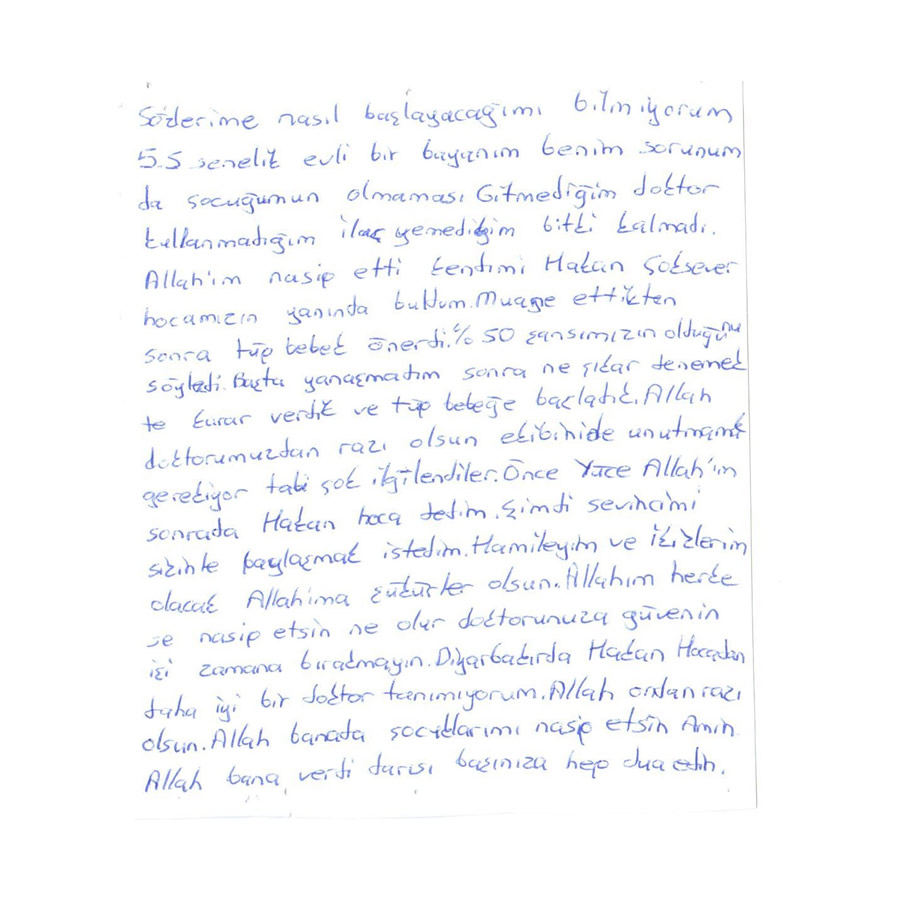 Sözlerime nasıl başlayacağımı bilmiyorum
5.5 senelik evli bir bayanım benim sorunum
da çocuğumun olmaması Gitmediğim doktor
kullanmadığım ilaç yemediğim bitki kalmadı.
Allah'ım nasip etti kendimi Hakan Çoksever
hocamızın yanında buldum. Muane ettikten
sonra tüp bebek önerdi. % 50 şansımızın olduğunu
söyledi. Başta yanaşmadım sonra ne çıkar denemek
te karar verdik ve tüp bebeğe başladık. Allah
doktorumuzdan razı olsun ekibinide unutmamak
gerekiyor tabi çok ilgilendiler. Önce Yüce Allah'ım
sonrada Hakan hoca dedim. Şimdi sevincimi
sizinle paylaşmak istedim. Hamileyim ve ikizlerim
olacak Allah'ıma şükürler olsun. Allahım herke
se nasip etsin ne olur doktorunuza güvenin
işi zamana bırakmayın. Diyarbakırda Hakan Hocadan
daha iyi bir doktor tanımıyorum. Allah ondan razı
olsun. Allah banada çocuklarımı nasip etsin Amin
Allah bana verdi darısı başınıza hep dua edin.